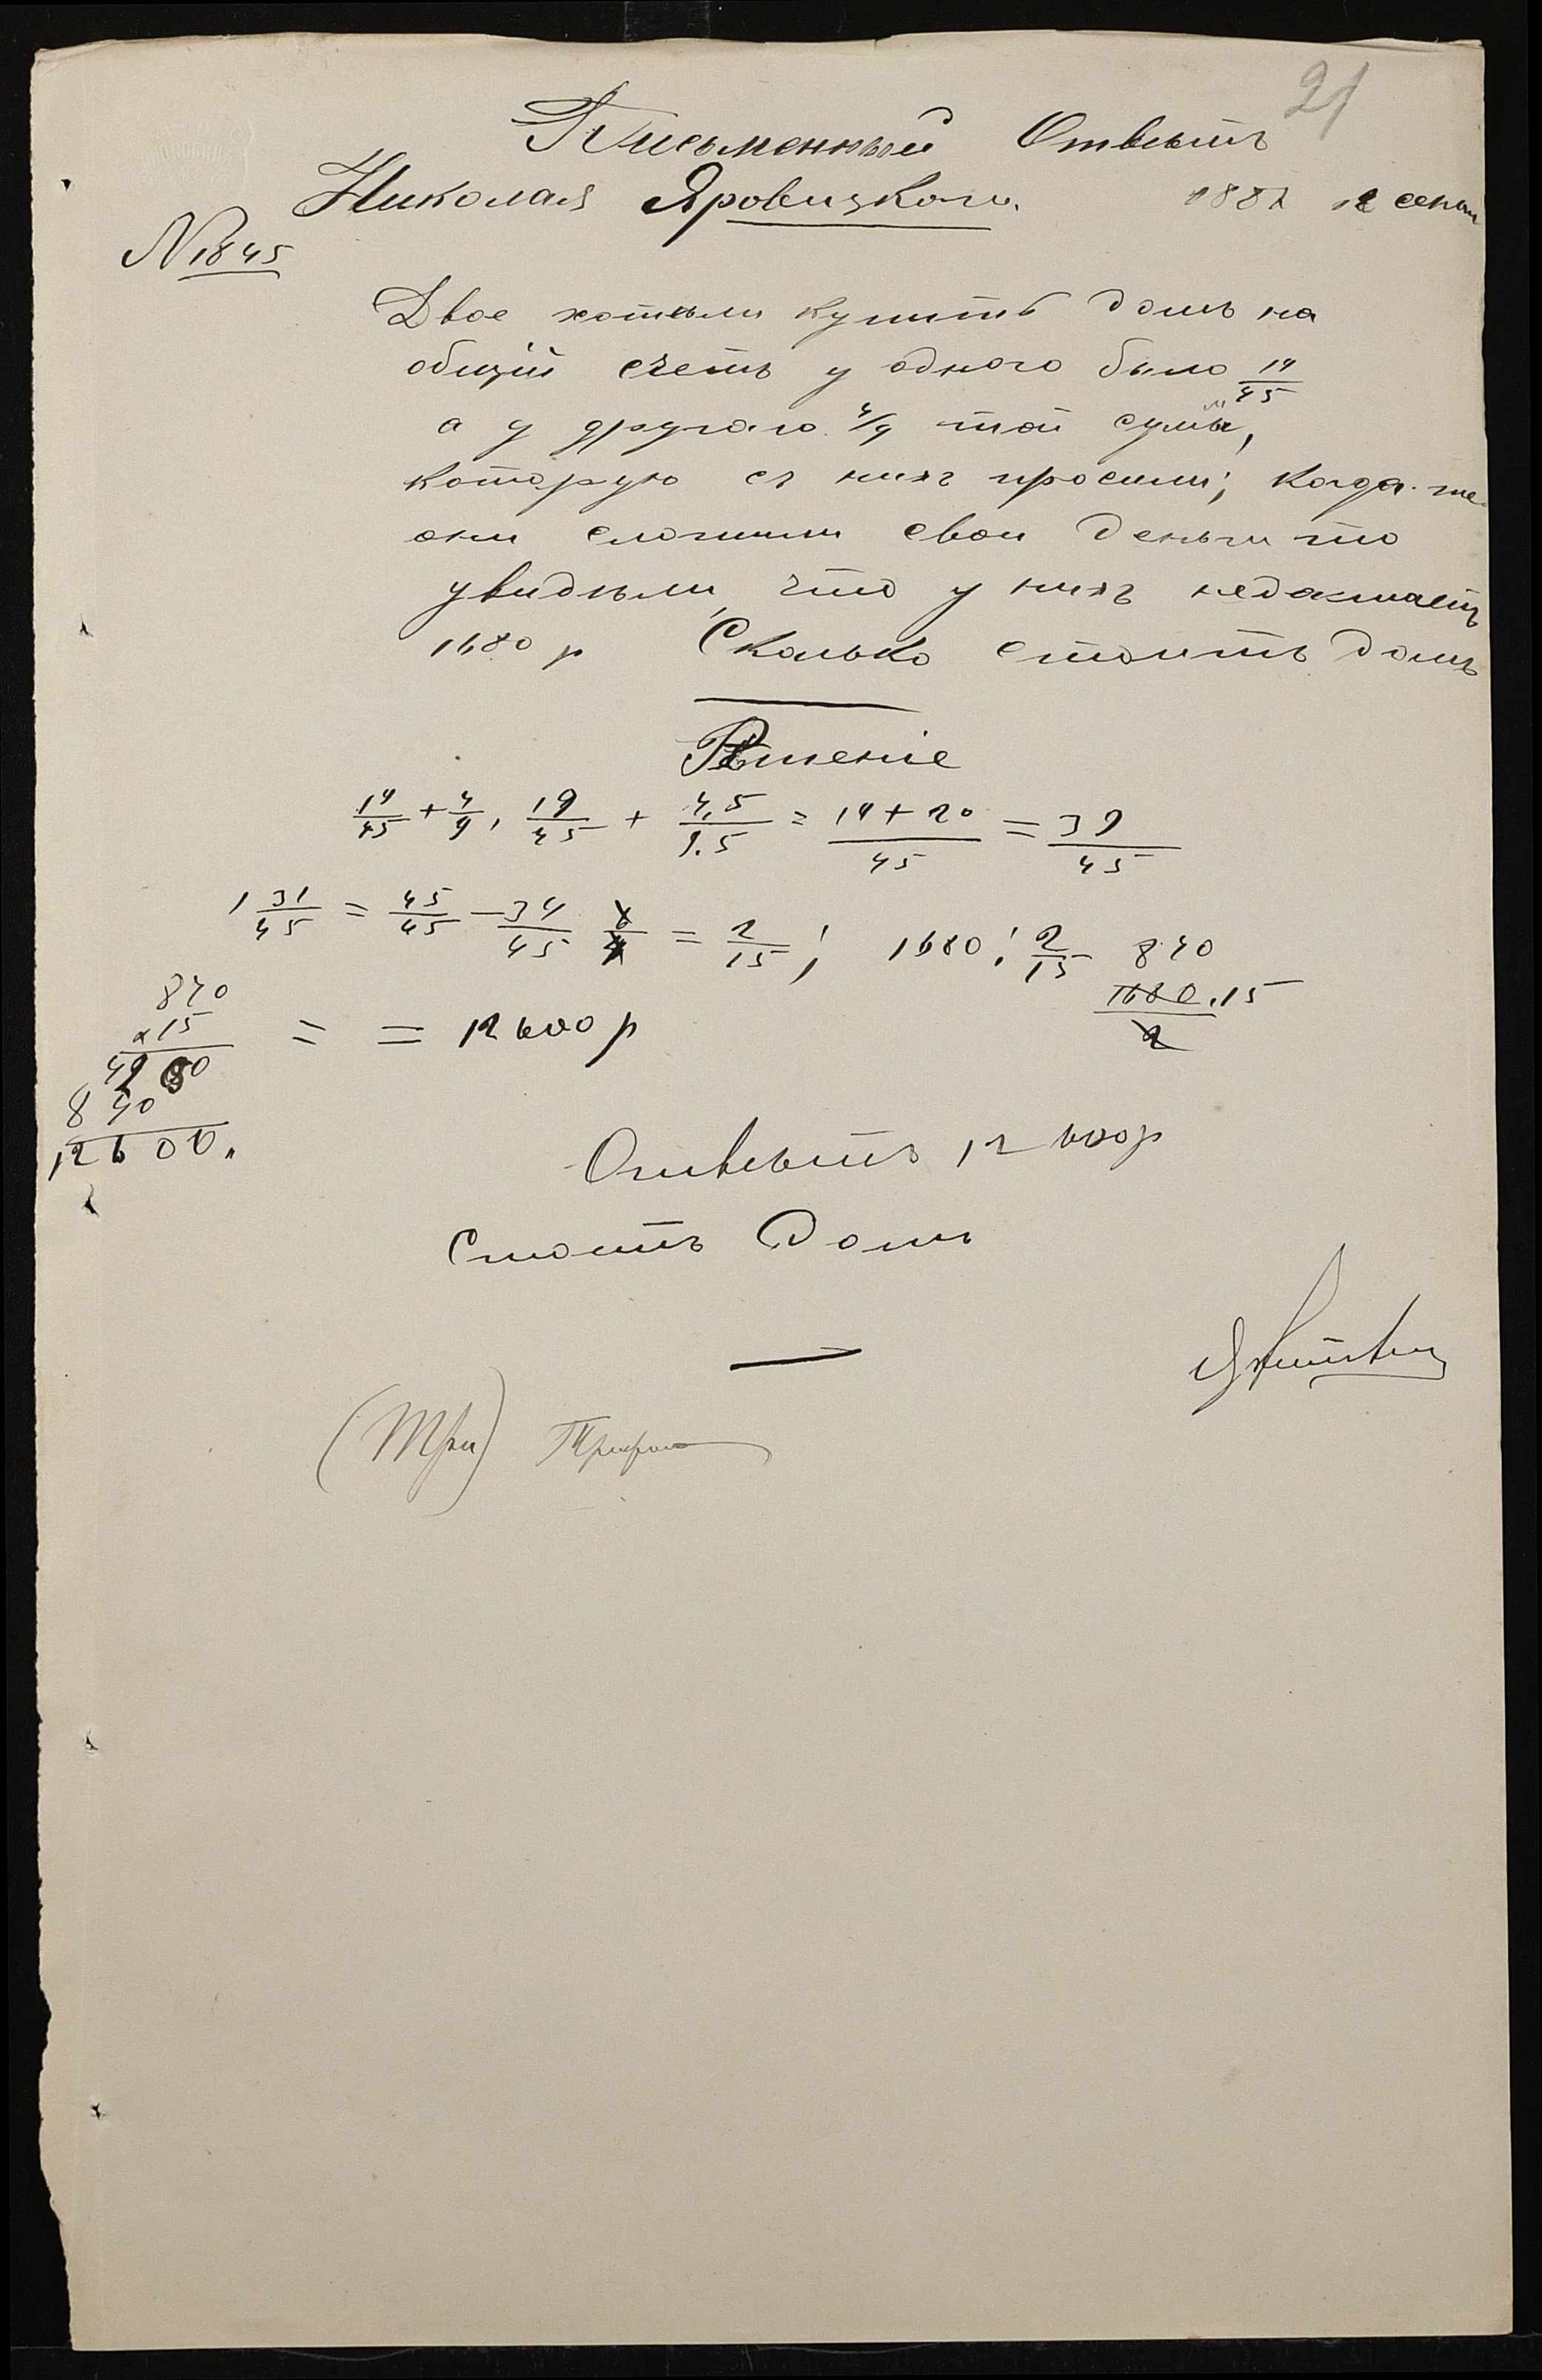 21
Письменный Ответъ
Николая Яровицкаго. 1882
N 1845
Двое хотѣли купить домъ на
общій счетъ у одного было 19/45
а у другаго 4/9 той суммы,
которую съ нихъ просили; когда же
они сложили свои деньги то
увидѣли, что у нихъ недостаетъ
1680 р Сколько стоитъ домъ
Рѣшеніе
19/45 + 4/9, 19/45 + 4.5/9.5 = 19+20/45 = 39/45
1 39/45 = 45/45 - 39/45 = 2/15; 1680 : 2/15 840
1680.15/2
= = 12600 р
840
x15
4200
840
12600.
Ответъ 12600р
Стоитъ Домъ
(Три)